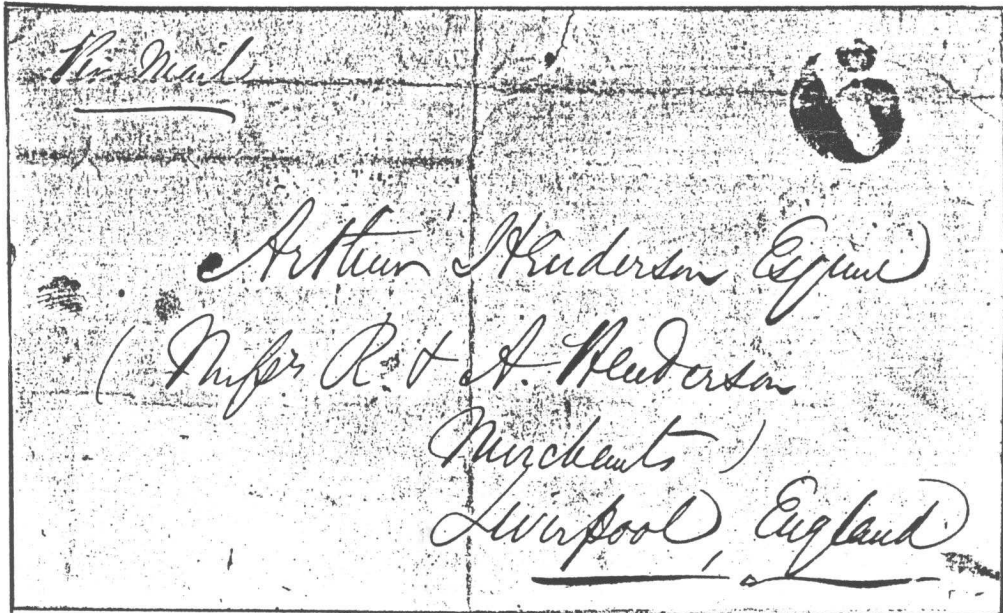 Per Mail
Arthur Henderson Esquire
( Messrs R. & A. Henderson
Merchants )
Liverpool, England